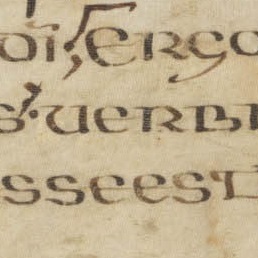 di; ergo
s· uerbi
sseest